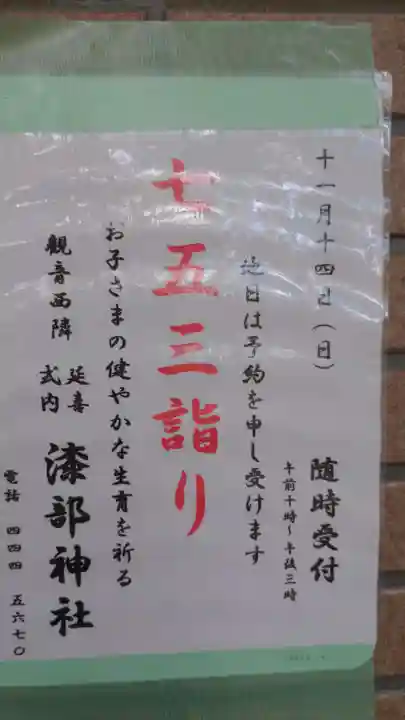 十一月十四日(日)
随時受付
午前十時〜午後三時
他日は予約を申し受けます
七五三詣り
お子さまの健やかな生育を祈る
観音西隣
延喜
式内
漆部神社
電話 四四四 五六七〇